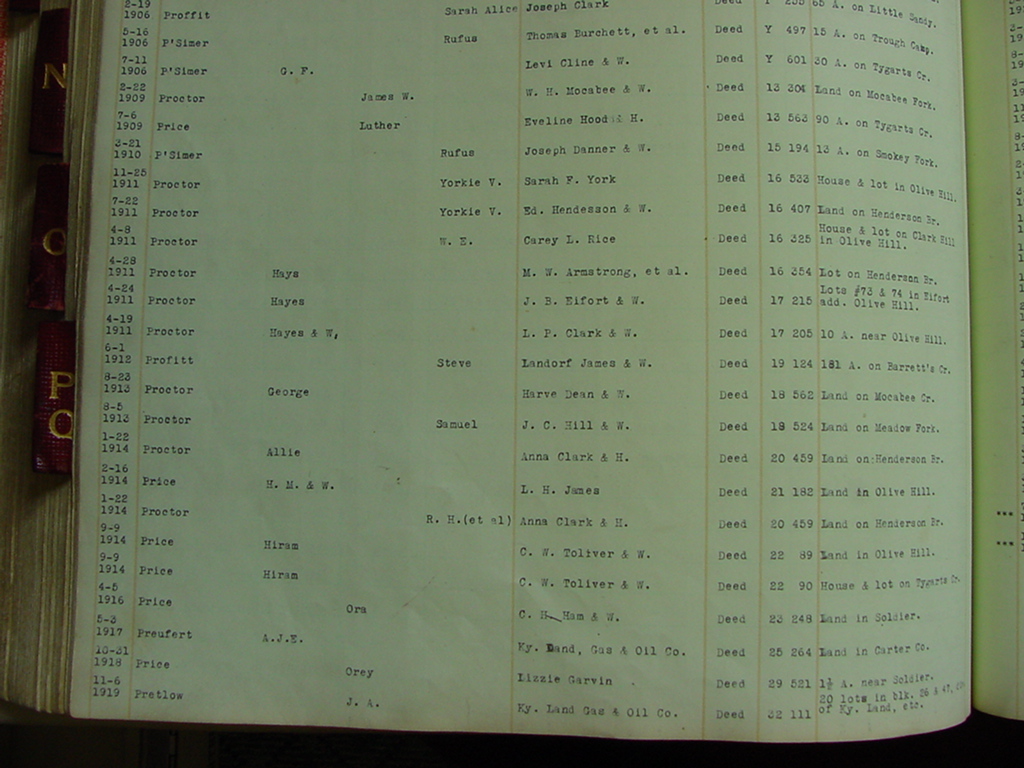 2-19
1906 Proffit Sarah Alice Joseph Clark Deed 65 A. on Little Sandy.
5-16
1906 P'Simer Rufus Thomas Burchett, et al. Deed Y 497 15 A. on Trough Camp.
7-11
1906 P'Simer G. F. Levi Cline & W. Deed Y 601 30 A. on Tygarts Cr.
2-22
1909 Proctor James W. W. H. Mocabee & W. Deed 13 304 Land on Mocabee Fork.
7-6
1909 Price Luther Eveline Hood & H. Deed 13 563 90 A. on Tygarts Cr.
3-21
1910 P'Simer Rufus Joseph Danner & W. Deed 15 194 13 A. on Smokey Fork.
11-25
1911 Proctor Yorkie V. Sarah F. York Deed 16 533 House & lot in Olive Hill.
7-22
1911 Proctor Yorkie V. Ed. Hendesson & W. Deed 16 407 Land on Henderson Br.
4-8
1911 Proctor W. E. Carey L. Rice Deed 16 325 House & lot on Clark Hill
in Olive Hill.
4-28
1911 Proctor Hays M. W. Armstrong, et al. Deed 16 354 Lot on Henderson Br.
4-24
1911 Proctor Hayes J. B. Eifort & W. Deed 17 215 Lots #73 & 74 in Eifort
add. Olive Hill.
4-19
1911 Proctor Hayes & W, L. P. Clark & W. Deed 17 205 10 A. near Olive Hill.
6-1
1912 Profitt Steve Landorf James & W. Deed 19 124 181 A. on Barrett's Cr.
8-23
1913 Proctor George Harve Dean & W. Deed 18 562 Land on Mocabee Cr.
8-5
1913 Proctor Samuel J. C. Hill & W. Deed 18 524 Land on Meadow Fork.
1-22
1914 Proctor Allie Anna Clark & H. Deed 20 459 Land on Henderson Br.
2-16
1914 Price H. M. & W. L. H. James Deed 21 182 Land in Olive Hill.
1-22
1914 Proctor R. H.(et al) Anna Clark & H. Deed 20 459 Land on Henderson Br.
9-9
1914 Price Hiram C. W. Toliver & W. Deed 22 89 Land in Olive Hill.
9-9
1914 Price Hiram C. W. Toliver & W. Deed 22 90 House & lot on Tygarts Cr.
4-5
1916 Price Ora C. H. Ham & W. Deed 23 248 Land in Soldier.
5-3
1917 Preufert A.J.E. Ky. Land, Gas & Oil Co. Deed 25 264 Land in Carter Co.
10-31
1918 Price Orey Lizzie Garvin Deed 29 521 1½ A. near Soldier.
11-6
1919 Pretlow J. A. Ky. Land Gas & Oil Co. Deed 32 111 20 lots in blk. 26 & 47,
of Ky. Land, etc.
N
O
P
Q